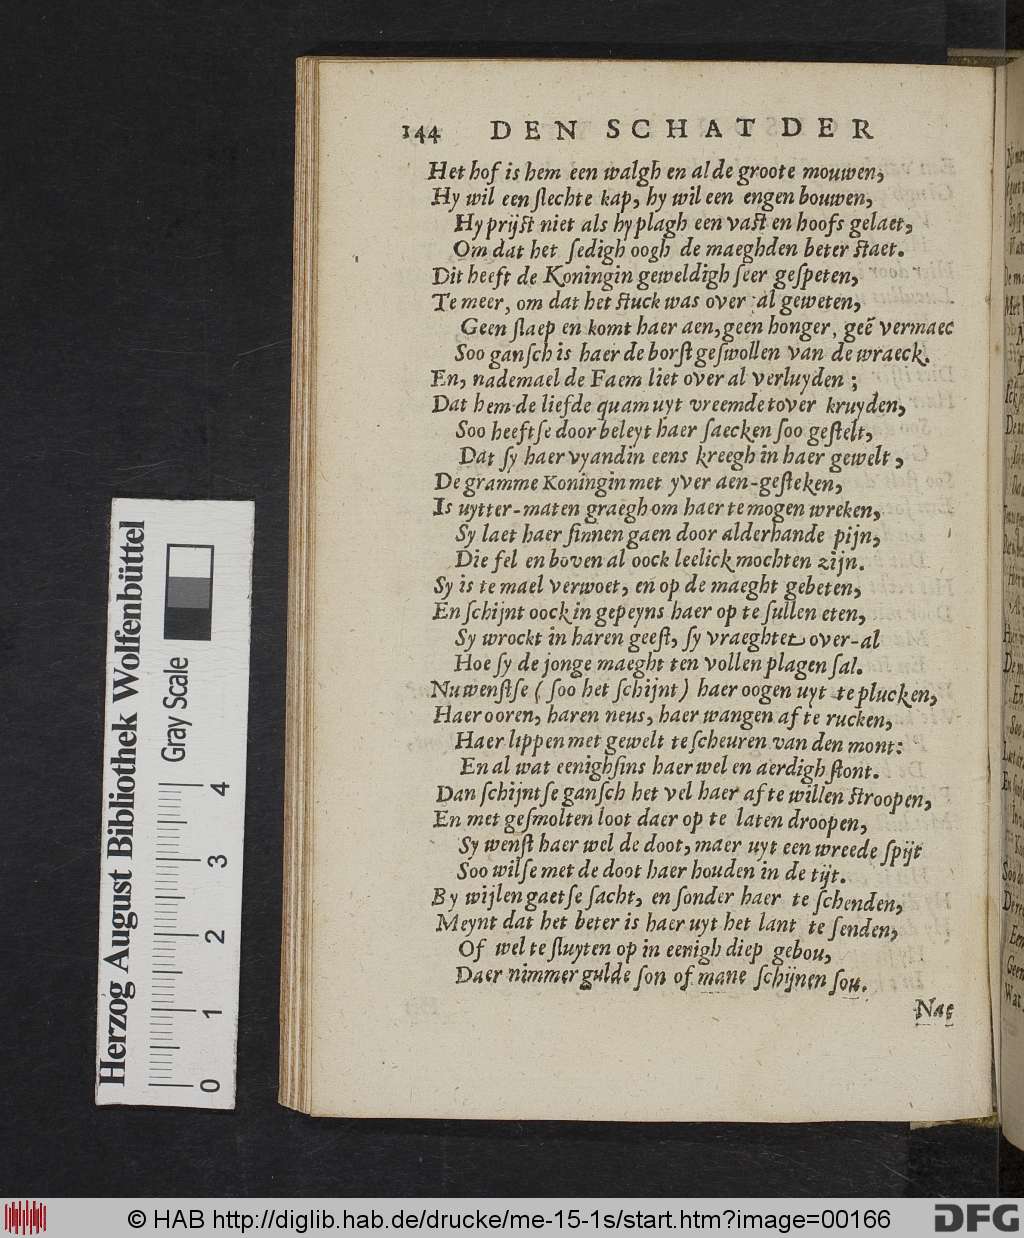 144 DEN SCHAT DER
Het hof is hem een walgh en al de groote mouwen,
Hy wil een ſlechte kap, hy wil een engen bouwen,
Hy prijſt niet als hy plagh een vaſt en hoofs gelaet,
Om dat het ſedigh oogh de maeghden beter ſtaet.
Dit heeft de Koningin geweldigh ſeer geſpeten,
Te meer, om dat het ſtuck was over al geweten,
Geen ſlaep en komt haer aen, geen honger, geẽ vermaec
Soo ganſch is haer de borſt geſwollen van de wraeck.
En, nademael de Faem liet over al verluyden;
Dat hem de liefde quam uyt vreemde tover kruyden,
Soo heeftſe door beleyt haer ſaecken ſoo geſtelt,
Dat ſy haer vyandin eens kreegh in haer gewelt,
De gramme Koningin met yver aen-geſteken,
Is uytter-maten graegh om haer te mogen wreken,
Sy laet haer ſinnen gaen door alderhande pijn,
Die fel en boven al oock leelick mochten zijn.
Sy is te mael verwoet, en op de maeght gebeten,
En ſchijnt oock in gepeyns haer op te ſullen eten,
Sy wrockt in haren geeſt, ſy vraeghtet over-al
Hoe ſy de jonge maeght ten vollen plagen ſal.
Nu wenſtſe (ſoo het ſchijnt) haer oogen uyt te plucken,
Haer ooren, haren neus, haer wangen af te rucken,
Haer lippen met gewelt te ſcheuren van den mont:
En al wat eenighſins haer wel en aerdigh ſtont.
Dan ſchijntſe ganſch het vel haer af te willen ſtroopen,
En met geſmolten loot daer op te laten droopen,
Sy wenſt haer wel de doot, maer uyt een wreede ſpijt
Soo wilſe met de doot haer houden in de tijt.
By wijlen gaetſe ſacht, en ſonder haer te ſchenden,
Meynt dat het beter is haer uyt het lant te ſenden,
Of wel te ſluyten op in eenigh diep gebou,
Daer nimmer gulde ſon of mane ſchijnen ſou.
Nae
Herzog August Bibliothek Wolfenbüttel
Gray Scale
0 1 2 3 4
© HAB http://diglib.hab.de/drucke/me-15-1s/start.htm?image=00166
DFG